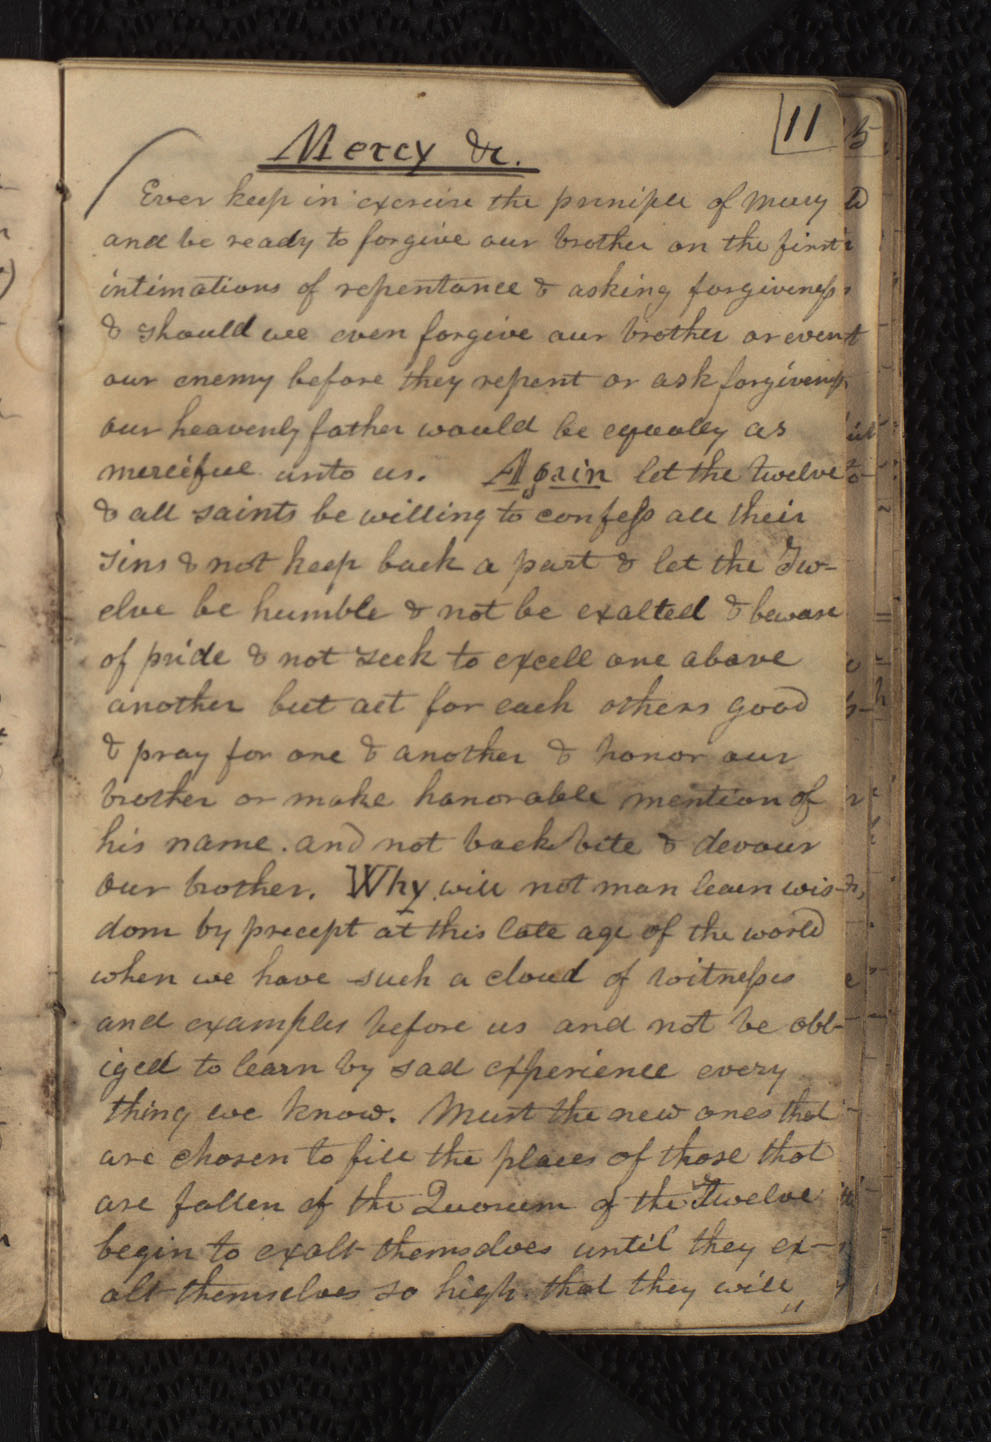 11
Mercy &c.
Ever keep in exercise the principle of mercy
and be ready to forgive our brother on the first
intimations of repentance & asking forgiveness
& should we even forgive our brother or even
our enemy before they repent or ask forgiveness
our heavenly father would be equally as
merciful unto us. Again let the twelve
& all saints be willing to confess all their
sins & not keep back a part & let the Tw-
elve be humble & not be exalted & beware
of pride & not seek to excell one above
another but act for each others good
& pray for one & another & honor our
brother or make honorable mention of
his name. and not back bite & devour
our brother. Why will not man learn wis-
dom by precept at this late age of the world
when we have such a cloud of witnesses
and examples before us and not be obl-
iged to learn by sad experience every
thing we know. Must the new ones that
are chosen to fill the places of those that
are fallen of the Quorum of the Twelve
begin to exalt themselves until they ex-
alt themselves so high that they will